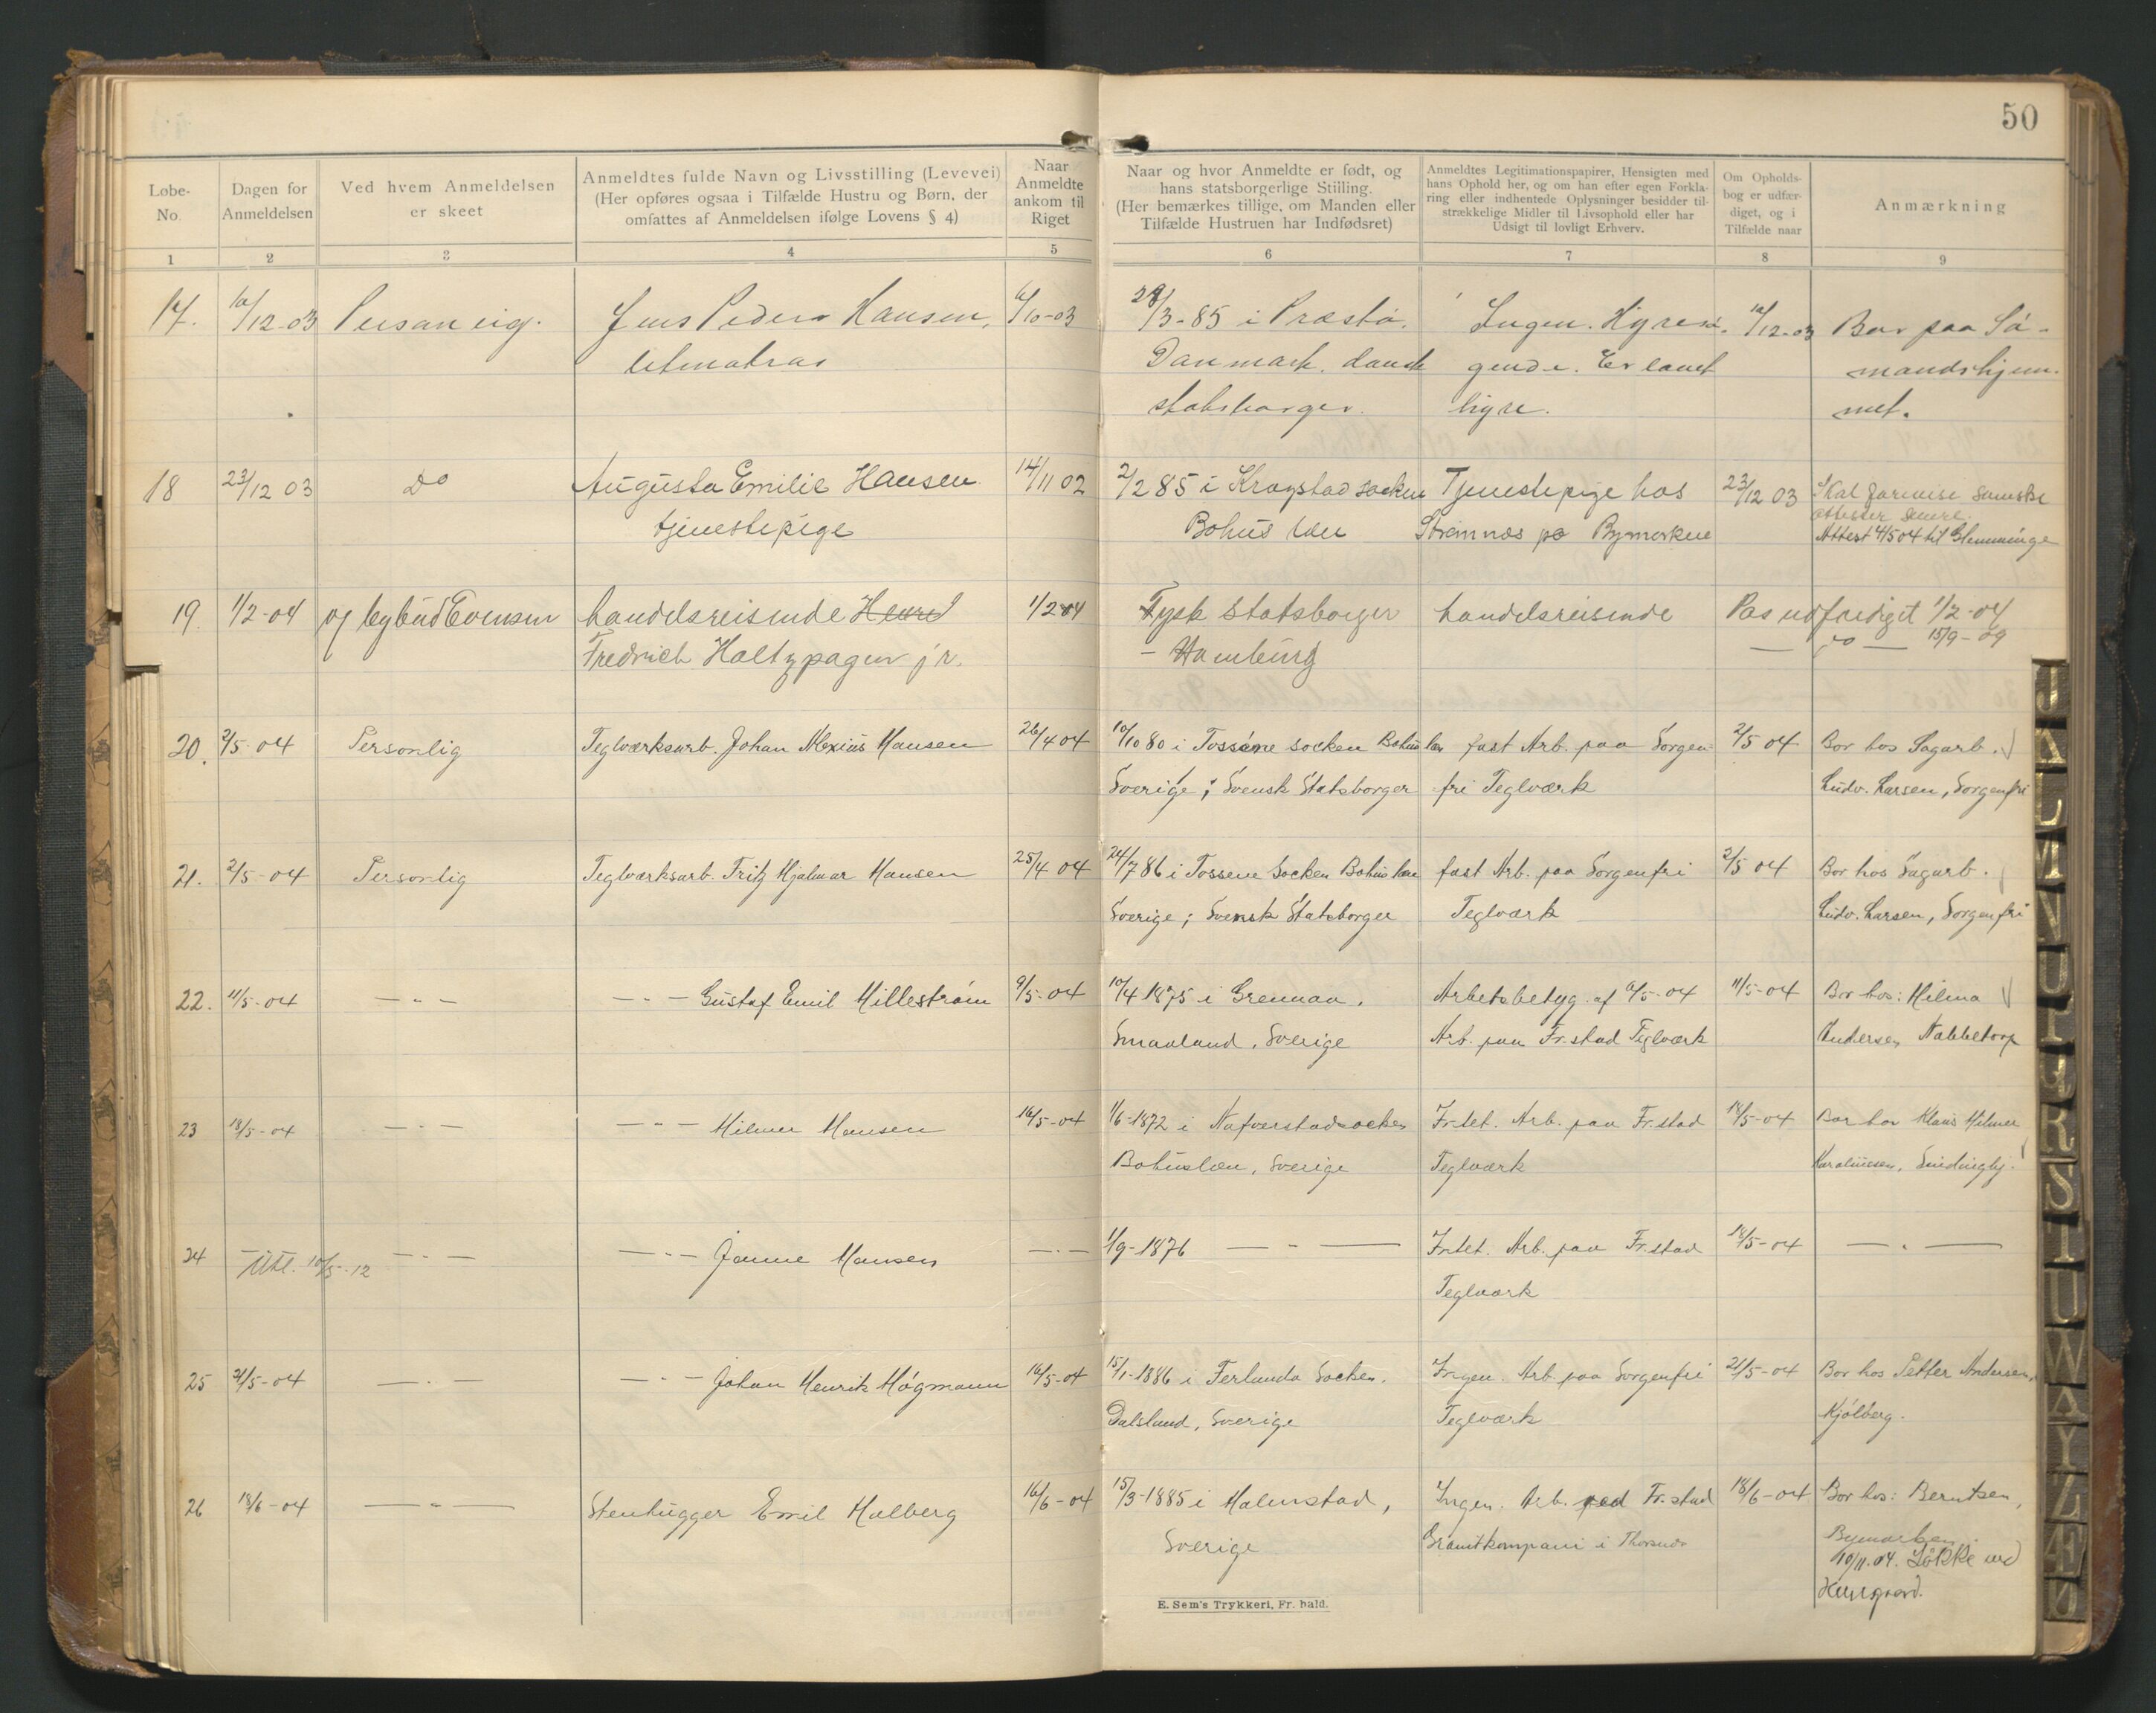 50
Løbe-No.
Dagen for Anmeldelsen
Ved hvem Anmeldelsen er skeet
Anmeldtes fulde Navn og Livsstilling (Levevei)
(Her opføres ogsaa i Tilfælde Hustru og Børn, der
omfattes af Anmeldelsen ifølge Lovens § 4)
Naar Anmeldte ankom til Riget
Naar og hvor Anmeldte er født, og
hans statsborgerlige Stilling.
(Her bemærkes tillige, om Manden eller
Tilfælde Hustruen har Indfødsret)
Anmeldtes Legitimationspapirer, Hensigten med
hans Ophold her, og om han efter egen Forkla-
ring eller indhentede Oplysninger besidder til-
strækkelige Midler til Livsophold eller har
Udsigt til lovligt Erhverv.
Om Opholds-
bog er udfær-
diget, og i
Tilfælde naar
Anmærkning
1 2 3 4 5 6 7 8 9
17. 10/12-03 Jens Peder Hansen, /10-03 /3-85 i Præstø. Ingen. Hyresø- 10/12-03 Bor paa Sø-
letmatros Danmark. dansk gende. Er lovet mandshjem-
statsborger. hyre. met.
18 23/12 03 Do Augusta Emilie Hansen 14/11 02 2/2 85 i Krogstad socken Tjenestepige hos 23/12 03 Skal
tjenestepige Bohus Len Strømnæs på Bymarken
Attest 4/5 04 til Glemminge
19. 1/2-04 handelsreisende Henred 1/2 04 Tysk Statsborger handelsreisende Pas udfærdiget 1/2-04
Fredrich Holtzpagen jr. - Hamburg — do — 15/9-09
20. 2/5-04 Personlig Teglværksarb. Johan Alexius Hansen 26/4 04 10/10 80 i Tossene socken Bohus len fast Arb. paa Sorgen- 2/5 04 Bor hos Sagarb.
Sverige; Svensk Statsborger fri Teglværk Ludv. Larsen, Sorgenfri
21. 2/5-04 Personlig Teglværksarb. Fritz Hjalmar Hansen 25/4 04 24/7 86 i Tossene Socken Bohus len fast Arb. paa Sorgenfri 2/5 04 Bor hos Sagarb.
Sverige; Svensk Statsborger Teglværk Ludv. Larsen, Sorgenfri
22. 11/5-04 — " — — " — Gustaf Emil Hilleström 9/5-04 10/4 1875 i Grennaa, Arbetsbetyg af 6/5-04 11/5-04 Bor hos: Hilma
Smaaland, Sverige Arb. paa Fr.stad Teglværk Andersen Nabbetorp
23 18/5-04 — " — — " — Hilmer Hansen 16/5-04 1/6-1872 i Nafverstad socken Intet. Arb. paa Fr.stad 18/5-04 Bor hos Klaus Hilmer
Bohuslen, Sverige Teglværk
24 — " — — " — — " — Janne Hansen — " — 1/9-1876 — " — Intet. Arb. paa Fr.stad 18/5-04 — " —
Utl. 10/5-12 Teglværk
25 21/5-04 — " — — " — Johan Henrik Högmann 16/5-04 15/1-1886 i Ferlunda Socken. Ingen. Arb. paa Sorgenfri 21/5-04 Bor hos Petter Andersen,
Dalsland, Sverige Teglværk Kjølberg.
26 18/6-04 — " — Stenhugger Emil Halberg 16/6-04 15/3-1885 i Halmstad, Ingen. Arb. ved Fr.stad 18/6-04 Bor hos: Berntsen,
Sverige Granitkompani i Thorsnes Bymarken.
10/11.04. Løkke ved
E. Sem's Trykkeri, Fr. hald.
J
A
L
M
N
O
P
Q
R
S
T
U
W
A
Y
Z
Æ
Ø